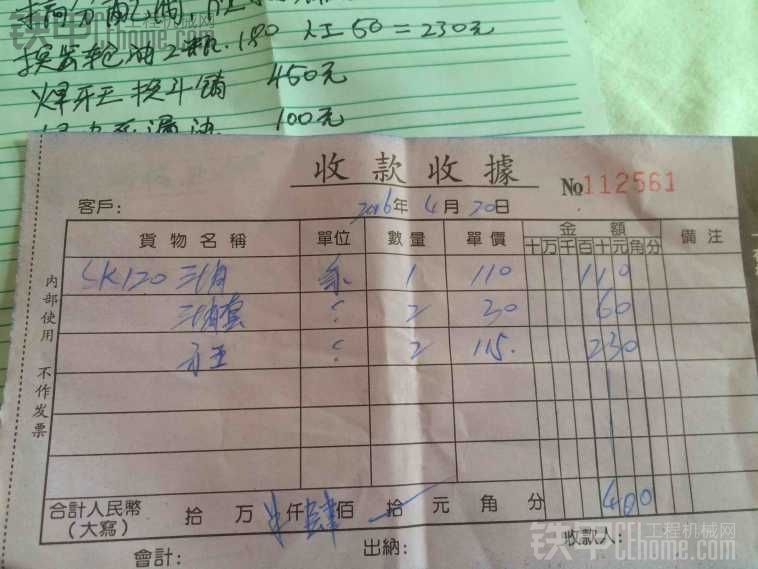 铁甲 工程机械网
CEhome.com
换齿轮油2瓶.180 人工50=230元
焊牙王换斗销 450元
漏油 100元
收款收據
No 112561
客戶: 2016年 4月 20日
貨物名稱 單位 數量 單價 金額 備注
十万千百十元角分
SK120 三角 条 1 110 110
三角套 〃 2 30 60
〃 2 115. 230
内部使用 不作发票
合計人民幣(大寫) 拾 万 仟 肆佰 拾 元 角 分 400
會計: 出納: 收款人:
铁甲 工程机械网
CEhome.com